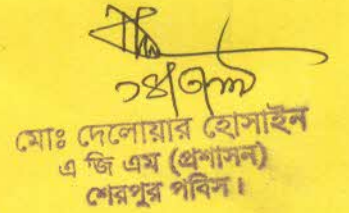 মোঃ দেলোয়ার হোসাইন
এ জি এম (প্রশাসন)
শেরপুর পবিস।